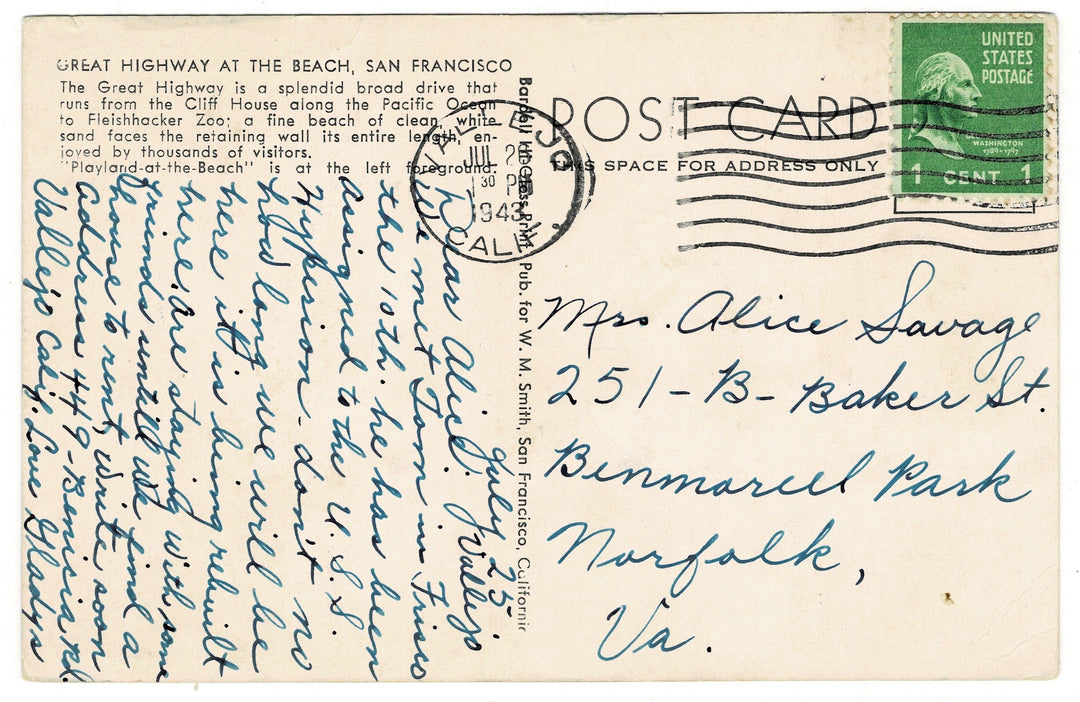 GREAT HIGHWAY AT THE BEACH, SAN FRANCISCO
The Great Highway is a splendid broad drive that
runs from the Cliff House along the Pacific Ocean
to Fleishhacker Zoo; a fine beach of clean, white
sand faces the retaining wall its entire length, en-
joyed by thousands of visitors.
"Playland-at-the-Beach" is at the left foreground.
July 25
Vallejo
Dear Alice.
We met Tom in Frisco
the 10th. he has been
assigned to the U.S.S.
Hyperion - don't no
how long we will be
here it is being rebuilt
here. Are staying with some
friends untill we find a
house to rent, Write soon
address 449-Benicia Rd.
Vallejo Calif. Love Gladys
Pub. for W. M. Smith, San Francisco, Californir
POST CARD
THIS SPACE FOR ADDRESS ONLY
VALLEJO
JUL 25
30 PM
1943
CALIF.
UNITED
STATES
POSTAGE
WASHINGTON
1789-1797
1 CENT 1
Mrs. Alice Savage
251-B-Baker St.
Benmoreell Park
Norfolk,
Va.